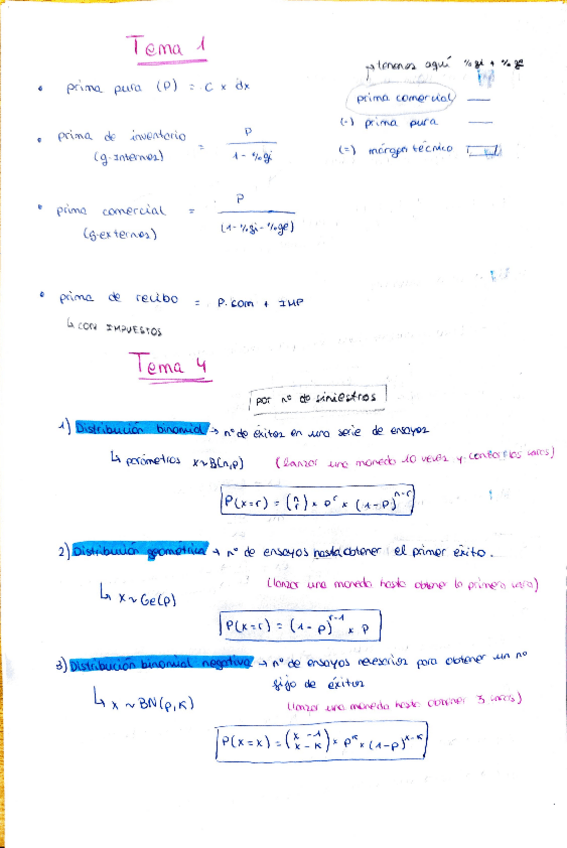 Tema 1
↳ tenemos aquí %gi + %ge
• prima pura (P) = C x dx
prima comercial
(-) prima pura
(=) márgen técnico
• prima de inventario = P / 1 - %gi
(g. internos)
• prima comercial = P / (1 - %gi - %ge)
(g. externos)
• prima de recibo = P. com + IMP
↳ CON IMPUESTOS
Tema 4
por nº de siniestros
1) Distribución binomial → nº de éxitos en una serie de ensayos
↳ parámetros x~B(n,p) (lanzar una moneda 10 veces y contar las caras)
P(x=r) = (n r) x p^r x (1-p)^n-r
2) Distribución geométrica → nº de ensayos hasta obtener el primer éxito.
(lanzar una moneda hasta obtener la primera cara)
↳ x ~ Ge(p)
P(x=r) = (1-p)^r-1 x p
3) Distribución binomial negativa → nº de ensayos necesarios para obtener un nº
fijo de éxitos
↳ x ~ BN(p,k) (lanzar una moneda hasta obtener 3 caras)
P(x=x) = (x-1 x-k) x p^k x (1-p)^x-k